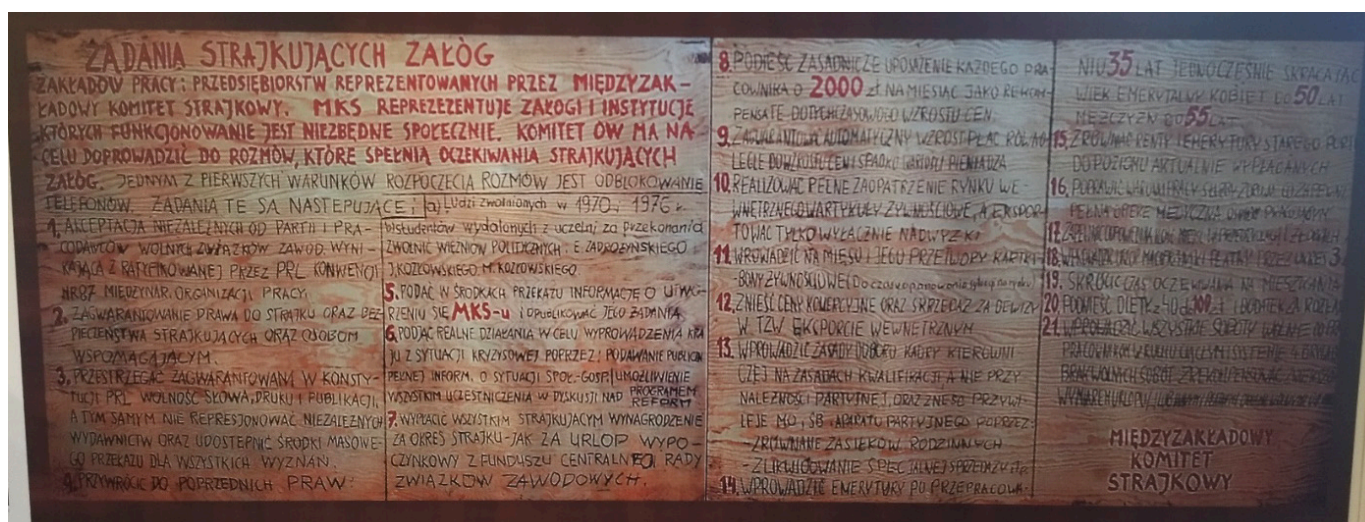 ŻĄDANIA STRAJKUJĄCYCH ZAŁÓG
ZAKŁADÓW PRACY I PRZEDSIĘBIORSTW REPREZENTOWANYCH PRZEZ MIĘDZYZAK-
ŁADOWY KOMITET STRAJKOWY. MKS REPREZEZENTUJE ZAŁOGI I INSTYTUCJE
KTÓRYCH FUNKCJONOWANIE JEST NIEZBĘDNE SPOŁECZNIE. KOMITET ÓW MA NA
CELU DOPROWADZIĆ DO ROZMÓW, KTÓRE SPEŁNIĄ OCZEKIWANIA STRAJKUJĄCYCH
ZAŁÓG. JEDNYM Z PIERWSZYCH WARUNKÓW ROZPOCZĘCIA ROZMÓW JEST ODBLOKOWANIE
TELEFONÓW. ŻĄDANIA TE SĄ NASTĘPUJĄCE:
1. AKCEPTACJA NIEZALEŻNYCH OD PARTII I PRA-
CODAWCÓW WOLNYCH ZWIĄZKÓW ZAWOD. WYNI-
KAJĄCA Z RATYFIKOWANEJ PRZEZ PRL KONWENCJI
NR 87 MIĘDZYNAR. ORGANIZACJI PRACY.
2. ZAGWARANTOWANIE PRAWA DO STRAJKU ORAZ BEZ-
PIECZEŃSTWA STRAJKUJĄCYCH ORAZ OSOBOM
WSPOMAGAJĄCYM.
3. PRZESTRZEGAĆ ZAGWARANTOWANĄ W KONSTY-
TUCJI PRL WOLNOŚĆ SŁOWA, DRUKU I PUBLIKACJI,
A TYM SAMYM NIE REPRESJONOWAĆ NIEZALEŻNYCH
WYDAWNICTW ORAZ UDOSTĘPNIĆ ŚRODKI MASOWE-
GO PRZEKAZU DLA WSZYSTKICH WYZNAŃ.
4. PRZYWRÓCIĆ DO POPRZEDNICH PRAW:
a) Ludzi zwolnionych w 1970 i 1976 r.
b) studentów wydalonych z uczelni za przekonania
ZWOLNIĆ WIĘŹNIÓW POLITYCZNYCH: E. ZADROŻYŃSKIEGO
J. KOZŁOWSKIEGO M. KOZŁOWSKIEGO
5. PODAĆ W ŚRODKACH PRZEKAZU INFORMACJĘ O UTWO-
RZENIU SIĘ MKS-u i OPUBLIKOWAĆ JEGO ŻĄDANIA
6. PODJĄĆ REALNE DZIAŁANIA W CELU WYPROWADZENIA KRA
JU Z SYTUACJI KRYZYSOWEJ POPRZEZ: PODAWANIE PUBLICZN
PEŁNEJ INFORM. O SYTUACJI SPOŁ-GOSP. UMOŻLIWIENIE
WSZYSTKIM UCZESTNICZENIA W DYSKUSJI NAD PROGRAMEM
REFORM
7. WYPŁACIĆ WSZYSTKIM STRAJKUJĄCYM WYNAGRODZENIE
ZA OKRES STRAJKU-JAK ZA URLOP WYPO-
CZYNKOWY Z FUNDUSZU CENTRALNEJ RADY
ZWIĄZKÓW ZAWODOWYCH.
8. PODNIEŚĆ ZASADNICZE UPOSAŻENIE KAŻDEGO PRA
COWNIKA O 2000 zł NA MIESIĄC JAKO REKOM-
PENSATĘ DOTYCHCZASOWEGO WZROSTU CEN.
9. ZAGWARANTOWAĆ AUTOMATYCZNY WZROST PŁAC RÓWNO
LEGLE DO WZROSTU CEN I SPADKU WARTOŚCI PIENIĄDZA
10. REALIZOWAĆ PEŁNE ZAOPATRZENIE RYNKU WE-
WNĘTRZNEGO W ARTYKUŁY ŻYWNOŚCIOWE, A EKSPOR
TOWAĆ TYLKO WYŁĄCZNIE NADWYŻKI
11. WROWADZIĆ NA MIĘSO I JEGO PRZETWORY KARTKI-
BONY ŻYWNOŚCIOWE
12. ZNIEŚĆ CENY KOMERCYJNE ORAZ SKRZEDAŻ ZA DEWIZY
W TZW EKSPORCIE WEWNĘTRZNYM
13. WPROWADZIĆ ZASADY DOBORU KADRY KIEROWNI
CZEJ NA ZASADACH KWALIFIKACJI A NIE PRZY
NALEŻNOŚCI PARTYJNEJ, ORAZ ZNIEŚĆ PRZYWI-
LEJE MO, SB i APARATU PARTYJNEGO POPRZEZ:
-ZRÓWNANIE ZASIŁKÓW RODZINNYCH
-ZLIKWIDOWANIE SPECJALNEJ SPRZEDAŻY ITP.
14. WPROWADZIĆ EMERYTURY PO PRZEPRACOWA-
NIU 35 LAT JEDNOCZEŚNIE SKRACAJĄC
WIEK EMERYTALNY KOBIET DO 50 LAT
MĘŻCZYZN DO 55 LAT
15. ZRÓWNAĆ RENTY I EMERYTURY STAREGO PORT
DO POZIOMU AKTUALNIE WYPŁACANYCH
16. POPRAWIĆ WARUNKI PRACY SŁUŻBY ZDROWIA
PEŁNĄ OPIEKĘ MEDYCZNĄ
17.
18.
19. SKRÓCIĆ CZAS OCZEKIWANIA NA MIESZKANIA
20. PODNIEŚĆ DIETY z 40 do 100 zł i DODATEK ZA ROZŁĄ
21. WPROWADZIĆ WSZYSTKIE SOBOTY WOLNE OD
MIĘDZYZAKŁADOWY
KOMITET
STRAJKOWY